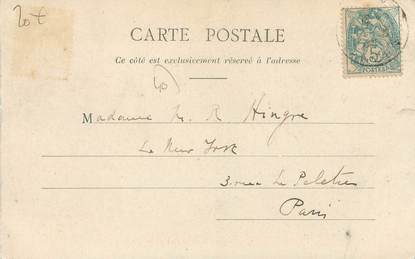 20+
CARTE POSTALE
Ce côté est exclusivement réservé à l'adresse
Madame H. R Hingre
Le New York
3 rue Le Peletier
Paris
5
POSTES